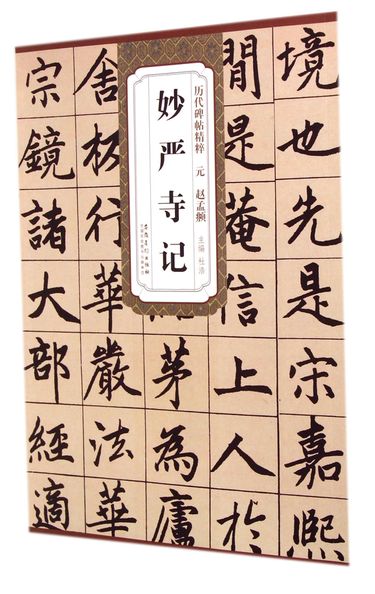 历代碑帖精粹 元 赵孟頫
主编 杜浩
妙严寺记
安徽美术出版社
境也先是宋嘉熙
間是菴信上人於
茅為廬
舍板行華嚴法華
宗鏡諸大部經適